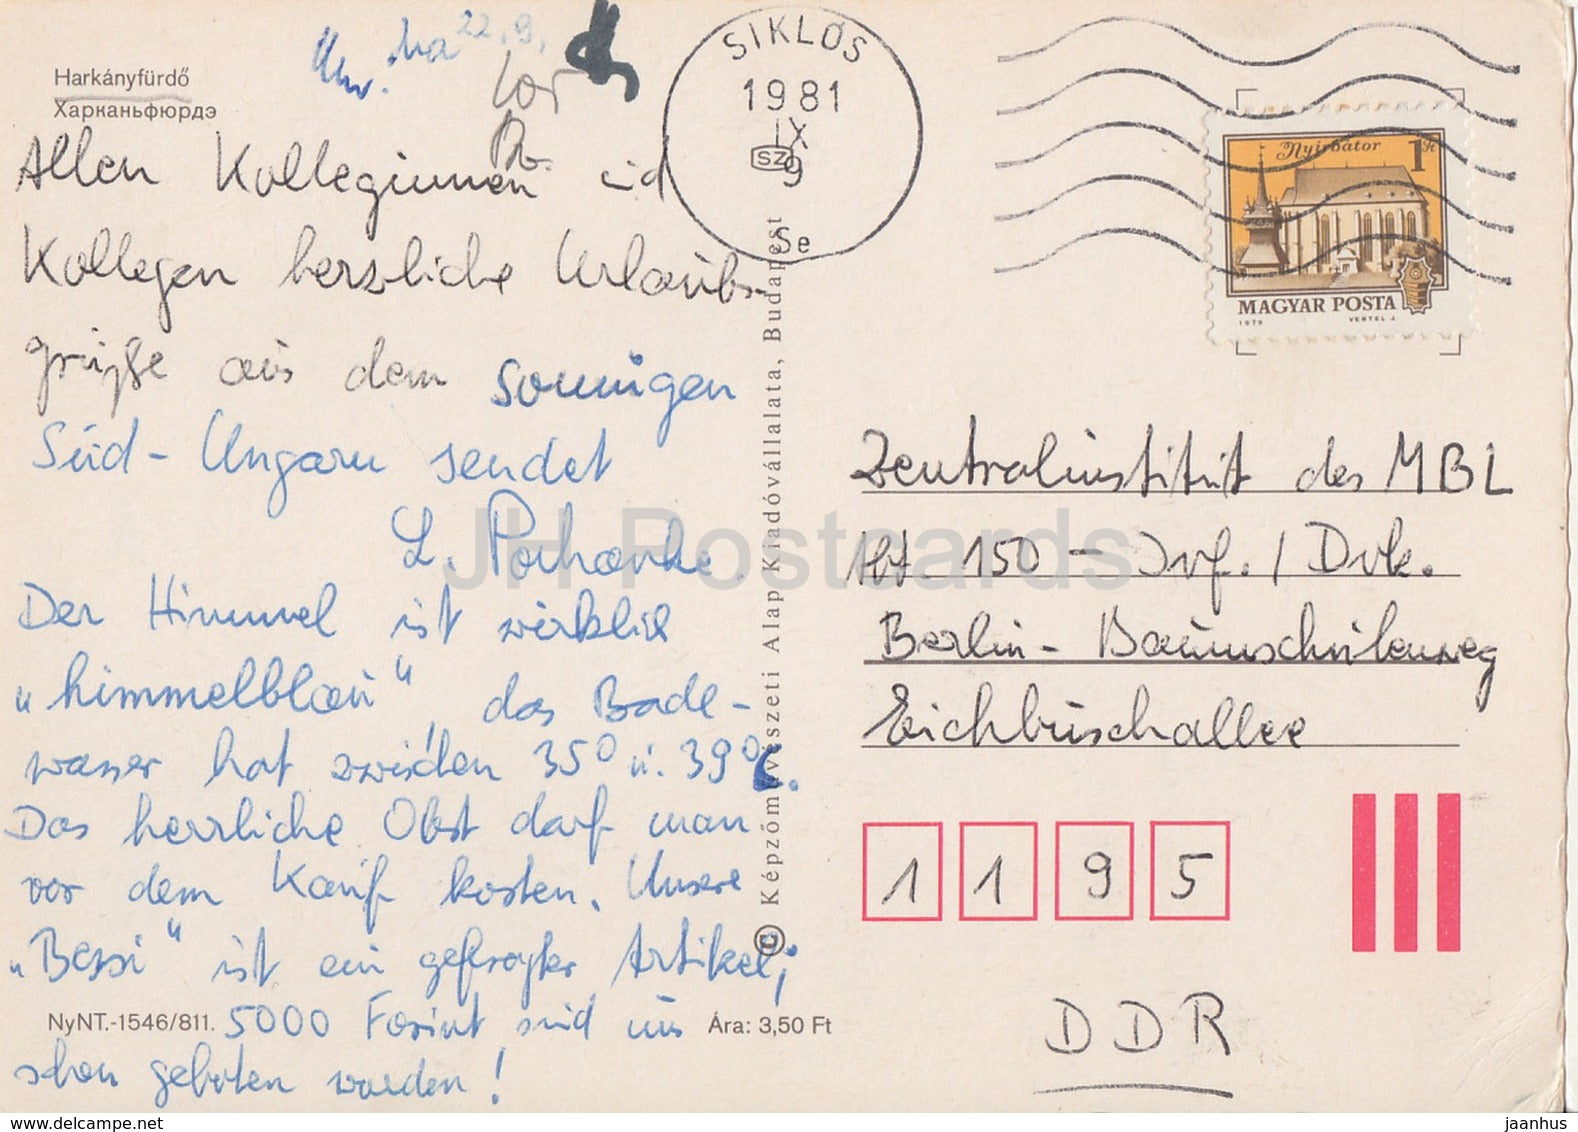 22.9.
Harkányfürdő
Харканьфюрдэ
Allen Kolleginnen und
Kollegen herzliche Urlaubs-
grüße aus dem sonnigen
Süd-Ungarn sendet
L.
Der Himmel ist wirklich
"himmelblau", das Bade-
wasser hat zwischen 35° u. 39°C.
Das herrliche Obst darf man
vor dem Kauf kosten. Unsere
"Bessi" ist ein gefragter Artikel;
5000 Forint sind uns
schon geboten worden!
NyNT.-1546/811.
Ára: 3,50 Ft
© Képzőművészeti Alap Kiadóvállalata, Budapest
SIKLÓS
1981
IX
SZ
9
Se
Nyírbátor 1 Ft
MAGYAR POSTA
1979 VERTEL J.
Zentralinstitut des MBL
Abt 150 - Inf. / Dok.
Berlin-Baumschulenweg
Eichbuschallee
1 1 9 5
DDR
JH Postcards
www.delcampe.net
jaanhus